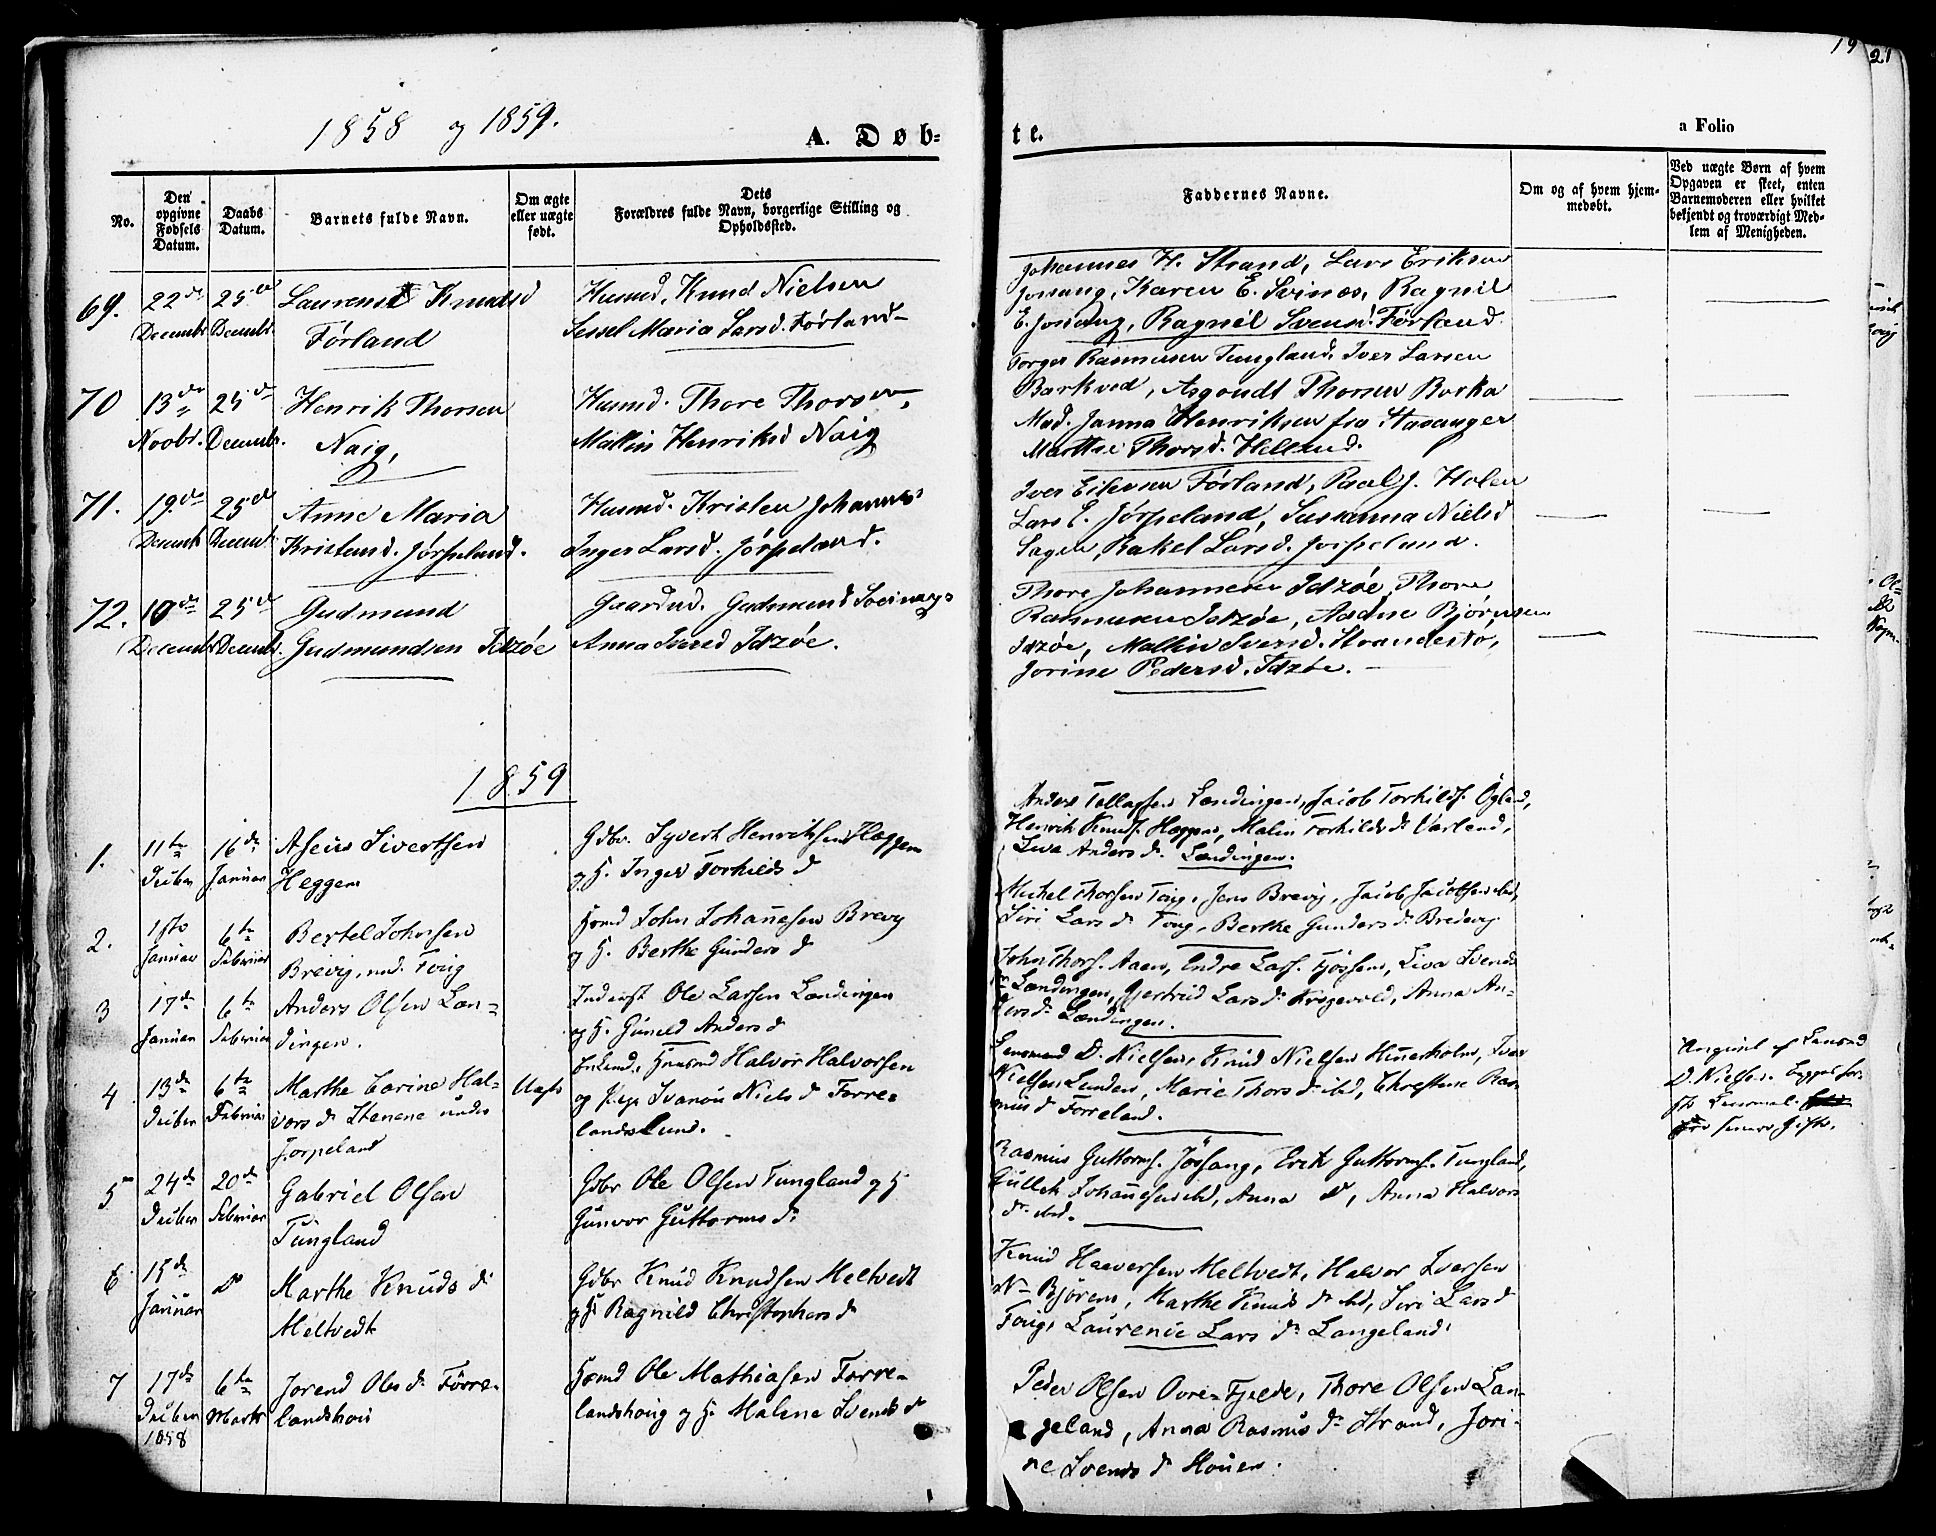 1858 og 1859.
A. Døb-
te.
a Folio
19
21
No.
Den opgivne Fødsels Datum.
Daabs Datum.
Barnets fulde Navn.
Om ægte eller uægte født.
Dets Forældres fulde Navn, borgerlige Stilling og Opholdssted.
Faddernes Navne.
Om og af hvem hjemmedøbt.
Ved uægte Børn af hvem Opgaven er skeet, enten Barnemoderen eller hvilket bekjendt og troværdigt Medlem af Menigheden.
69. 22de Decembr. 25de Decembr.
Laurense Knudsd
Førland
Husmd. Knud Nielsen
Sessel Maria Larsd. Førland
Johannes H. Strand, Lars Eriksen
Jøsang, Karen E. Svines, Ragnil
E. Jøsang, Ragnil Svensd. Førland.
70 13de Novbr. 25de Decembr.
Henrik Thorsen
Naig,
Husmd. Thore Thorsen,
Mallin Henriksd Naig
Torger Rasmussen Tungland, Iver Larsen
Barkved, Asgoudt Thorsen Barka
Mad. Janna Henriksen fra Stavanger
Marthe Thorsd. Helland.
71. 19de Decembr 25de Decembr.
Anne Maria
Kristensd. Jørpeland.
Husmd. Kristen Johannes
Inger Larsd. Jørpeland.
Iver Eilersen Førland, Paal J. Holen
Lars E. Jørpeland, Susanna Nielsd
Sagen, Rakel Larsd. Jørpeland.
72. 10de Decembr 25de Decembr.
Gudmund
Gudmundsen Idzøe
Gaardmd. Gudmund Sveinung
Anna Iversd Idzøe.
Thore Johannesen Idzøe, Thore
Rasmusen Idzøe, Aadne Bjørnsen
Idzøe, Mallin Iversd. Strandestø,
Jorine Pedersd. Idzøe.
1859
1. 11te Decber 16de Januar
Aseus Sivertsen
Heggem
Gdbr. Syvert Henriksen Heggem
og H. Inger Torkilds d
Anders Tallagsen Lændingen, Jacob Torkilds. Ögland,
Henrik Knuds. Heggem, Malin Torkilds d. Varland,
Liva Anders d. Lændingen.
2. 1ste Januar 6te Februar
Bertel Johnsen
Brevig, und. Foug
Hsmd John Johannesen Brevig
og H. Berthe Gunders d
Mikel Thorsen Foug, Jens Brevig, Jacob Jacobsen ibd,
Siri Lars d Foug, Berthe Gunders d. Brevig
3 17de Januar 6te Februar
Anders Olsen Læn-
dingen.
Inderst Ole Larsen Lændingen
og H. Guneld Anders d
John Thors. Aaen, Endre Lars. Fjøssene, Liva Svends
d Lændingen, Gjertrud Lars d. Krogevold, Anna An-
ders d. Lændingen.
4 13de Decber 6te Februar
Marthe Carine Hal-
vors d. Stenene under
Jørpeland
Uægte
Enkmd. Husmd Halvor Halvorsen
og Pige Ivanou Niels d Førre-
lands Lund.
Lensmand D. Nielsen, Knud Nielsen Himerholm, Iver
Nielsen Lunden, Marie Thors d. ibd, Christene Ras-
mus d Førreland.
Angivet af Lensmd
D. Nielsen. Begges for-
ste Leiermaal.
Fra senere Gifte.
5 24de Decber 20de Februar
Gabriel Olsen
Tungland
Gdbr Ole Olsen Tungland og H
Gunvor Guttorms d.
Rasmus Guttorms. Jössang, Erik Guttorms. Tungland,
Gullek Johannesen ibd, Anna do, Anna Halvors
d. ibd.
6 15de Januar do
Marthe Knuds d.
Meltvedt
Gdbr Knud Knudsen Meltvedt
og H. Ragnild Christophers d
Knud Haaversen Meltvedt, Halvor Iversen
N- Bjøren, Marthe Knuds d ibd, Siri Lars d
Foug, Laurence Lars d. Langeland.
7 17de Decber 1858 6te Marts
Jorend Oles d. Förre-
landshoug
Hsmd Ole Mathiasen Førre-
landshoug og H. Malene Svends d
Peder Olsen Øvre-Fjelde, Thore Olsen Lan-
geland, Anna Rasmus d. Strand, Jori-
ne Svends d Houen.